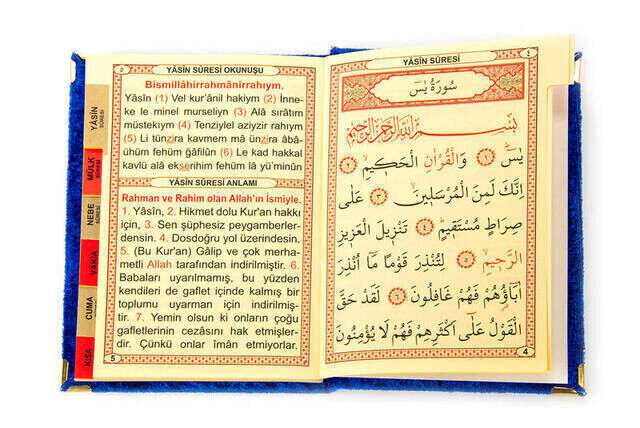 YÂSİN SÛRESİ OKUNUŞU
Bismillâhirrahmânirrahıym.
Yâsîn (1) Vel kur'ânil hakiym (2) İnne-
ke le minel murseliyn (3) Alâ sıratım
müstekıym (4) Tenziylel aziyzir rahıym
(5) Li tünzira kavmem mâ ünzira âbâ-
ühüm fehüm ğâfilûn (6) Le kad hakkal
kavlü alâ ekserihim fehüm lâ yü'minûn
YÂSİN SÛRESİ ANLAMI
Rahman ve Rahim olan Allah'ın ismiyle.
1. Yâsîn, 2. Hikmet dolu Kur'an hakkı
için, 3. Sen şüphesiz peygamberler-
densin. 4. Dosdoğru yol üzerindesin.
5. (Bu Kur'an) Gâlip ve çok merha-
metli Allah tarafından indirilmiştir. 6.
Babaları uyarılmamış, bu yüzden
kendileri de gaflet içinde kalmış bir
toplumu uyarman için indirilmiş-
tir. 7. Yemin olsun ki onların çoğu
gafletlerinin cezasını hak etmişler-
dir. Çünkü onlar îmân etmiyorlar.
5
YÂSİN
SÛRESİ
MÜLK
NEBE
SÛRESİ
VAKIA
CUMA
KISA
YÂSİN SÛRESİ
٤
سُورَةُ يٰسٓ
بِسْمِ اللّٰهِ الرَّحْمٰنِ الرَّحِيمِ
يٰسٓ ﴿١﴾ وَالْقُرْاٰنِ الْحَكِيمِ ﴿٢﴾
اِنَّكَ لَمِنَ الْمُرْسَلِينَ ﴿٣﴾ عَلٰى
صِرَاطٍ مُسْتَقِيمٍ ﴿٤﴾ تَنْزِيلَ الْعَزِيزِ
الرَّحِيمِ ﴿٥﴾ لِتُنْذِرَ قَوْمًا مَٓا اُنْذِرَ
اٰبَٓاؤُهُمْ فَهُمْ غَافِلُونَ ﴿٦﴾ لَقَدْ حَقَّ
الْقَوْلُ عَلٰٓى اَكْثَرِهِمْ فَهُمْ لَا يُؤْمِنُونَ
4